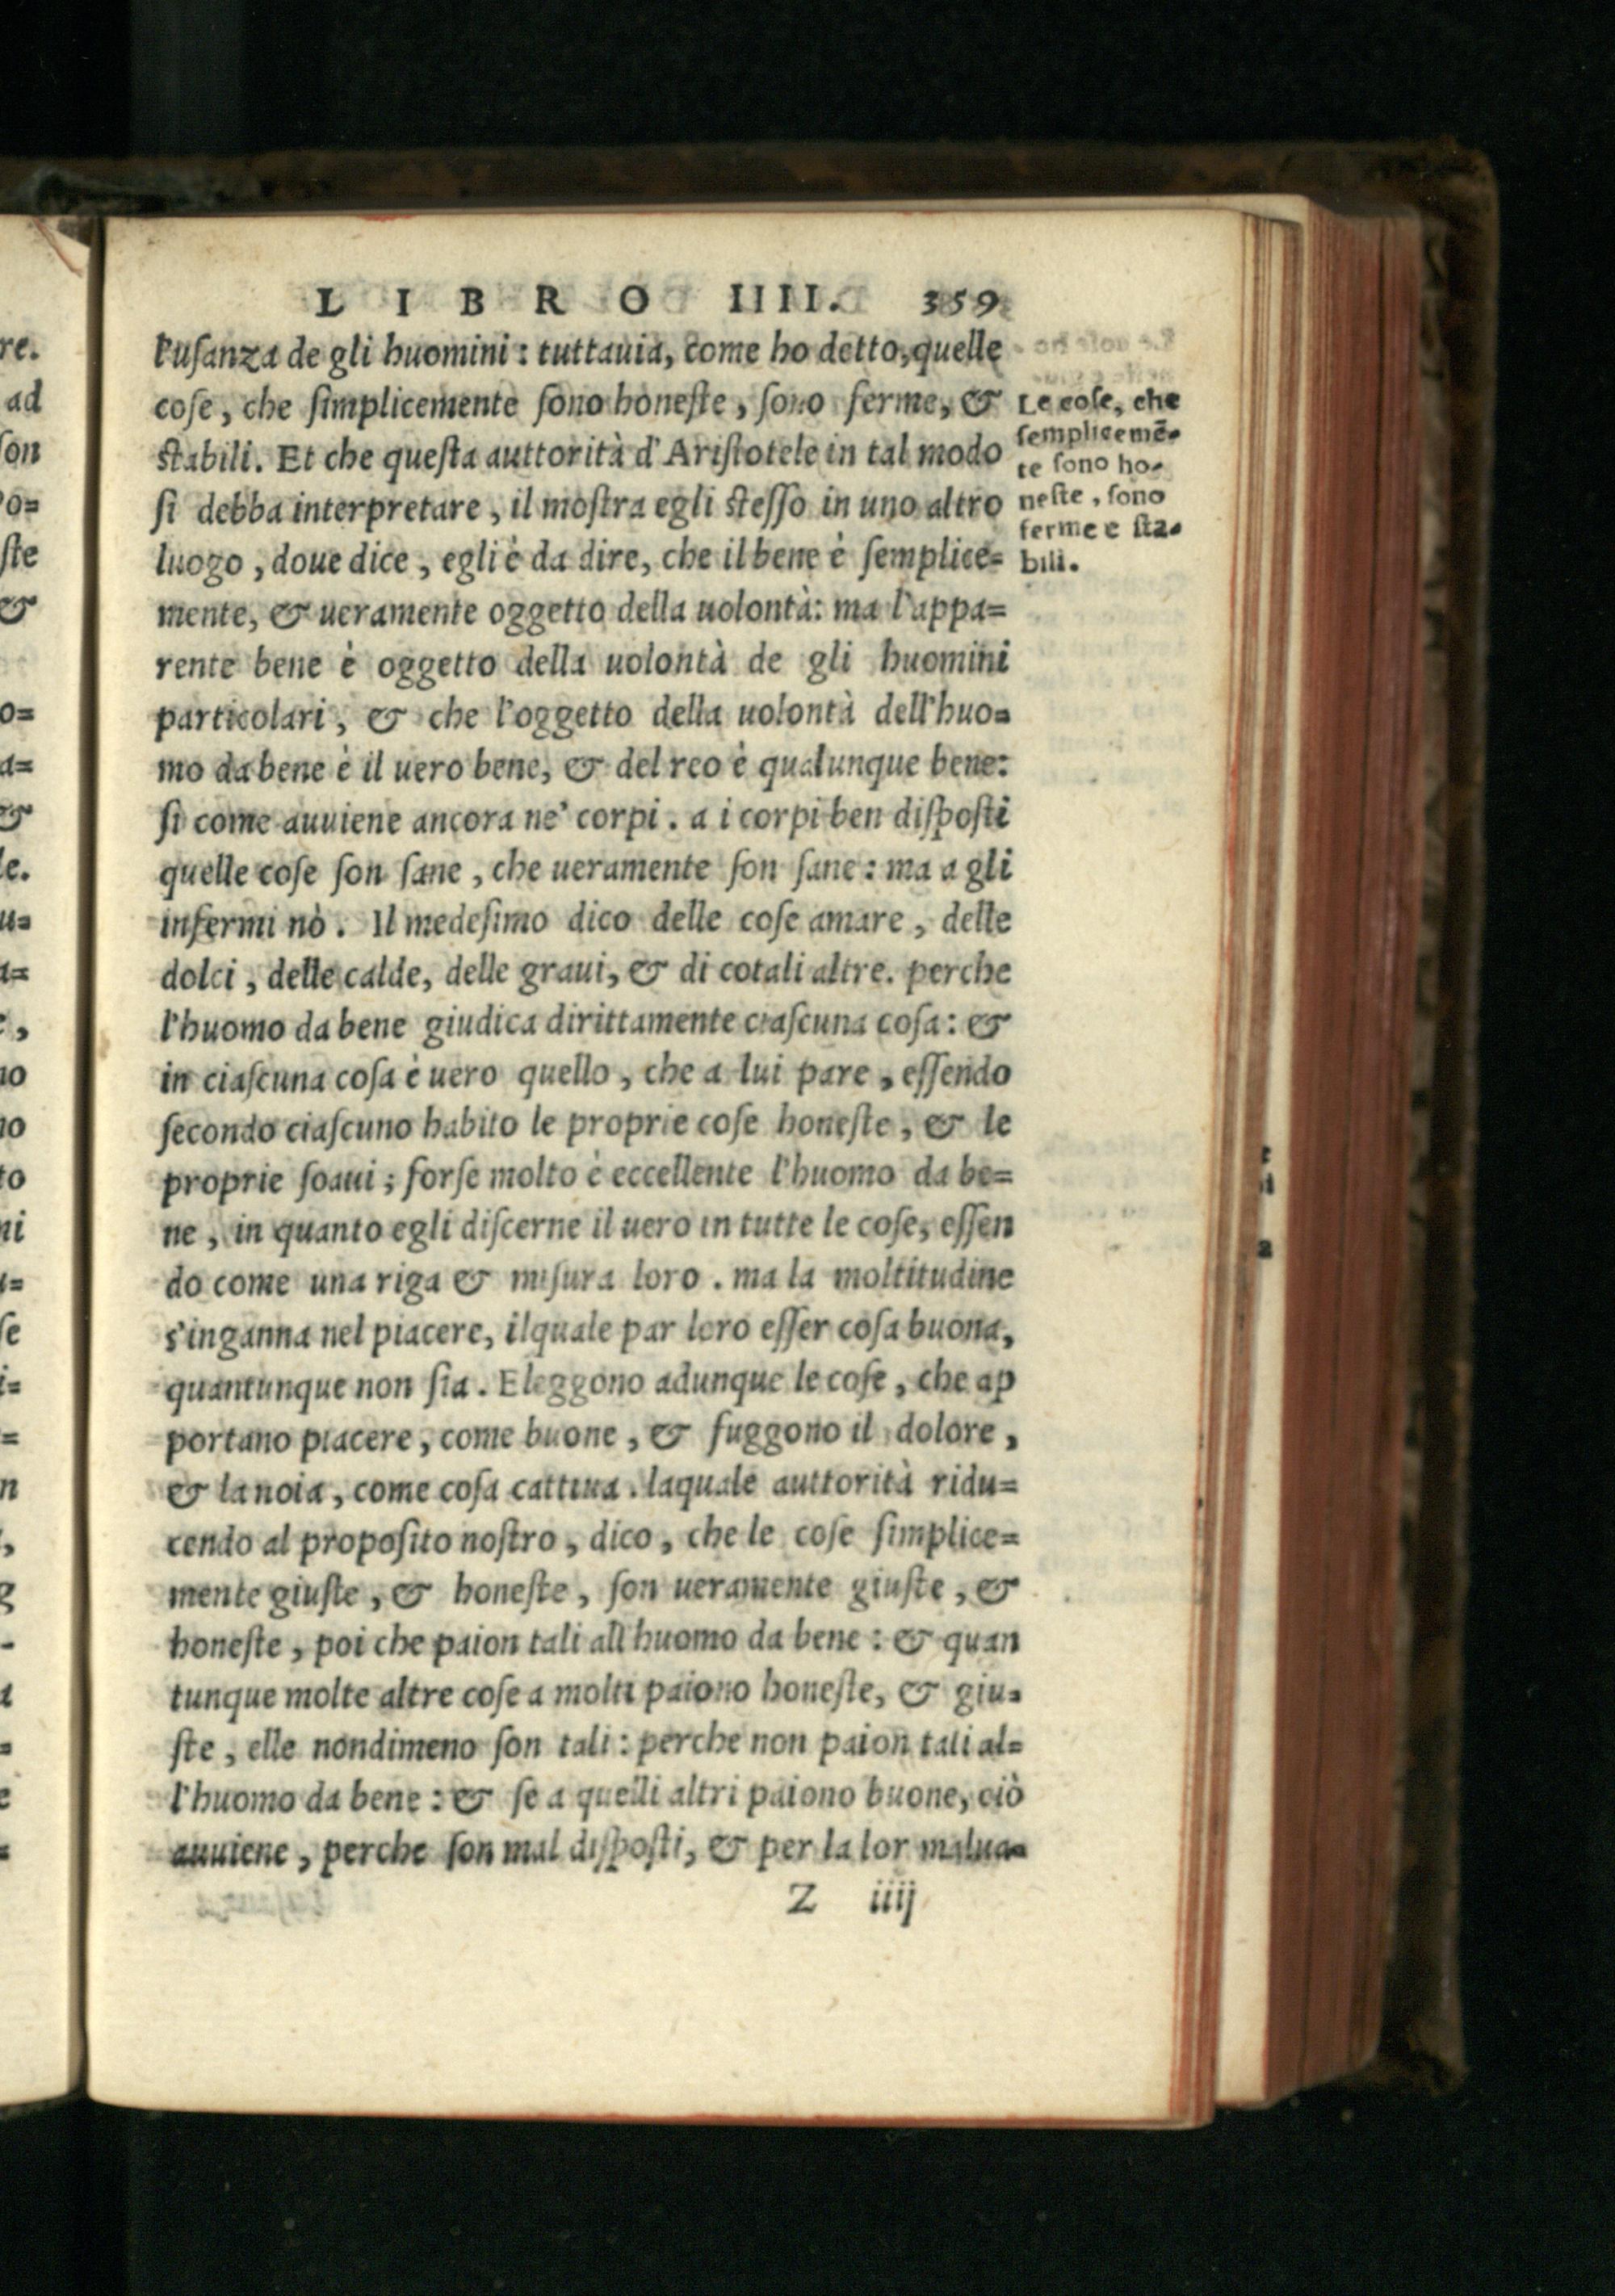 LIBRO IIII. 359
l'uſanza de gli huomini: tuttauia, come ho detto, quelle
coſe, che ſimplicemente ſono honeſte, ſono ferme, &
ſtabili. Et che queſta auttorità d'Ariſtotele in tal modo
ſi debba interpretare, il moſtra egli ſteſſo in uno altro
luogo, doue dice, egli è da dire, che il bene è ſemplice=
mente, & ueramente oggetto della uolontà: ma l'appa=
rente bene è oggetto della uolontà de gli huomini
particolari, & che l'oggetto della uolontà dell'huo=
mo da bene è il uero bene, & del reo è qualunque bene:
ſi come auuiene ancora ne' corpi. a i corpi ben diſpoſti
quelle coſe ſon ſane, che ueramente ſon ſane: ma a gli
infermi nò. Il medeſimo dico delle coſe amare, delle
dolci, delle calde, delle graui, & di cotali altre. perche
l'huomo da bene giudica dirittamente ciaſcuna coſa: &
in ciaſcuna coſa è uero quello, che a lui pare, eſſendo
ſecondo ciaſcuno habito le proprie coſe honeſte, & le
proprie ſoaui; forſe molto è eccellente l'huomo da be=
ne, in quanto egli diſcerne il uero in tutte le coſe, eſſen
do come una riga & miſura loro. ma la moltitudine
s'inganna nel piacere, ilquale par loro eſſer coſa buona,
quantunque non ſia. Eleggono adunque le coſe, che ap
portano piacere, come buone, & fuggono il dolore,
& la noia, come coſa cattiua. laquale auttorità ridu=
cendo al propoſito noſtro, dico, che le coſe ſimplice=
mente giuſte, & honeſte, ſon ueramente giuſte, &
honeſte, poi che paion tali all'huomo da bene: & quan
tunque molte altre coſe a molti paiono honeſte, & giu=
ſte, elle nondimeno ſon tali: perche non paion tali al=
l'huomo da bene: & ſe a quelli altri paiono buone, ciò
auuiene, perche ſon mal diſpoſti, & per la lor malua=
Z iiij
Le coſe, che
ſemplicemē-
te ſono ho-
neſte, ſono
ferme e ſta-
bili.